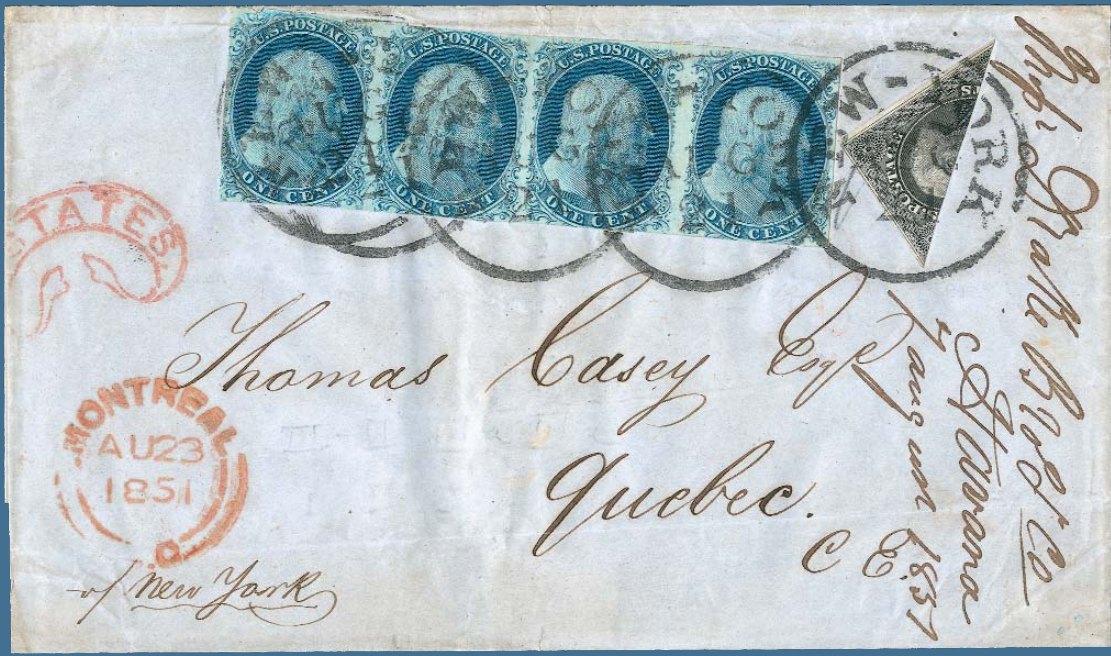 U.S.POSTAGE
ONE CENT
U.S.POSTAGE
ONE CENT
U.S.POSTAGE
ONE CENT
U.S.POSTAGE
ONE CENT
NEW-YORK
STATES
MONTREAL
AU23
1851
Thomas Casey Esqr
Quebec.
C E.
New York
Drake Bros & Co
Havana
august 1851